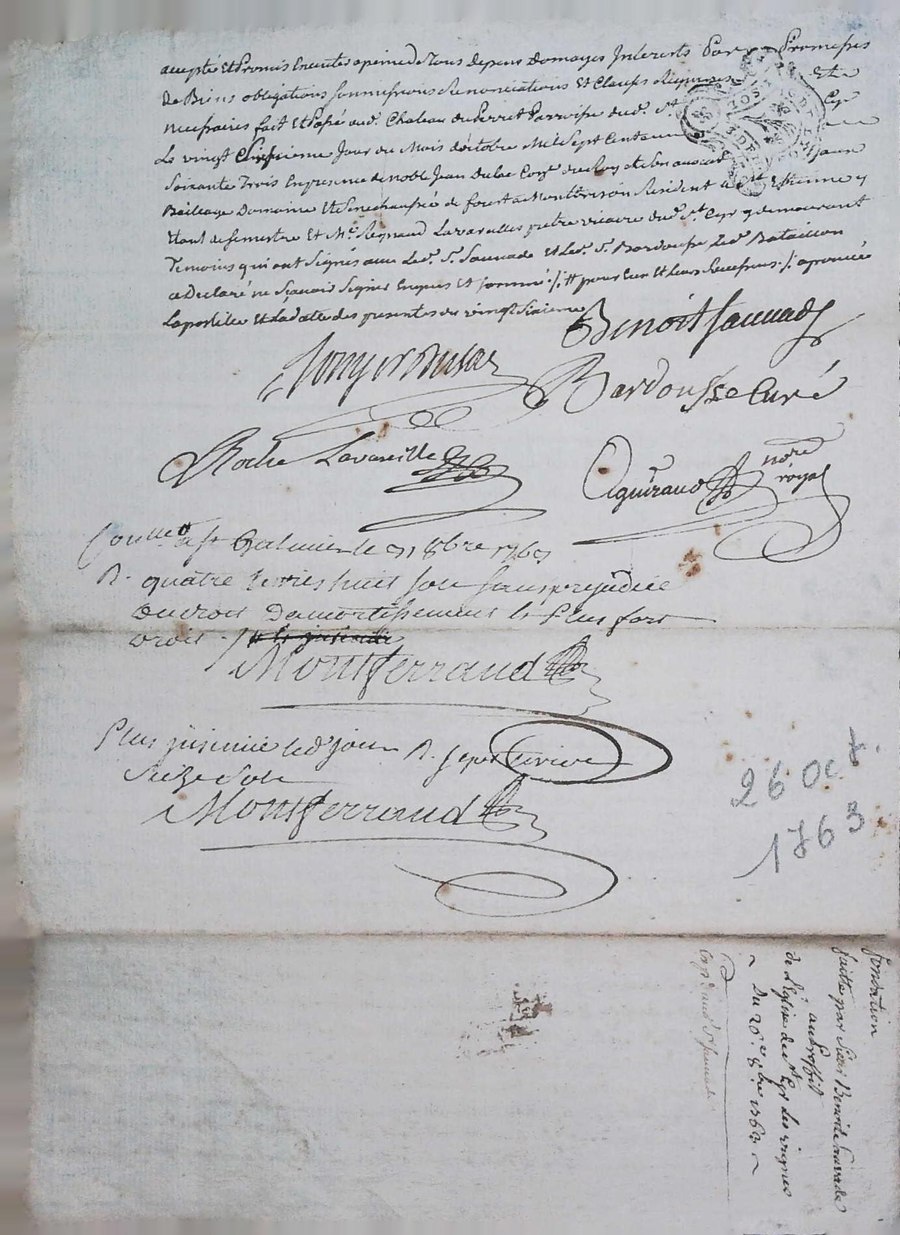 accepté Et Promis Executer a peine de Tous depens Domages Interests Par Promesses
de Biens obligations Soumissions Renonciations Et Clauses Et a
necessaires fait Et Passé aud. Chateau du Parroisse dud. St Cyr
Le vingt Sixieme Jour du Mois d'octobre Mil Sept Cent
Soixante Trois En presence de noble Jean Dulac du Roy et Son avocat au
Bailliage Domaine Et Senechaussée de forest a Montbrison Resident a St Ethienne y
Etant de Semestre Et Mre Regnaud Lavareilles pretre vicaire dud. St Cyr y demeurant
Temoins qui ont Signés avec Led. Sr. Sauvade Et Led. Sr. Bardousse Led. Bataillon
a Declaré ne Scavoir Signer Enquis Et Sommé ./. # pour Eux Et Leurs Successeurs ./. aprouvée
Lapostille Et La datte des presentes du vingt Sixieme
Benoit Sauvade
Bardousse Curé
Roche Lavareille
Aguiraud nore
royal
Conlle a St Galmier le 31 8bre 1763
R. quatre livres huit sols sans prejudice
du droit D'amortissement le plus fort
droit ./.
Montferrand
Plus insinué led. jour R. sept livres
Seize Sols
Montferrand
26 Oct.
1763
fondation
faitte par Sieur Benoit Sauvade
au Proffit
de L'Eglise de St Cyr les vignes
Du 26e 8bre 1763